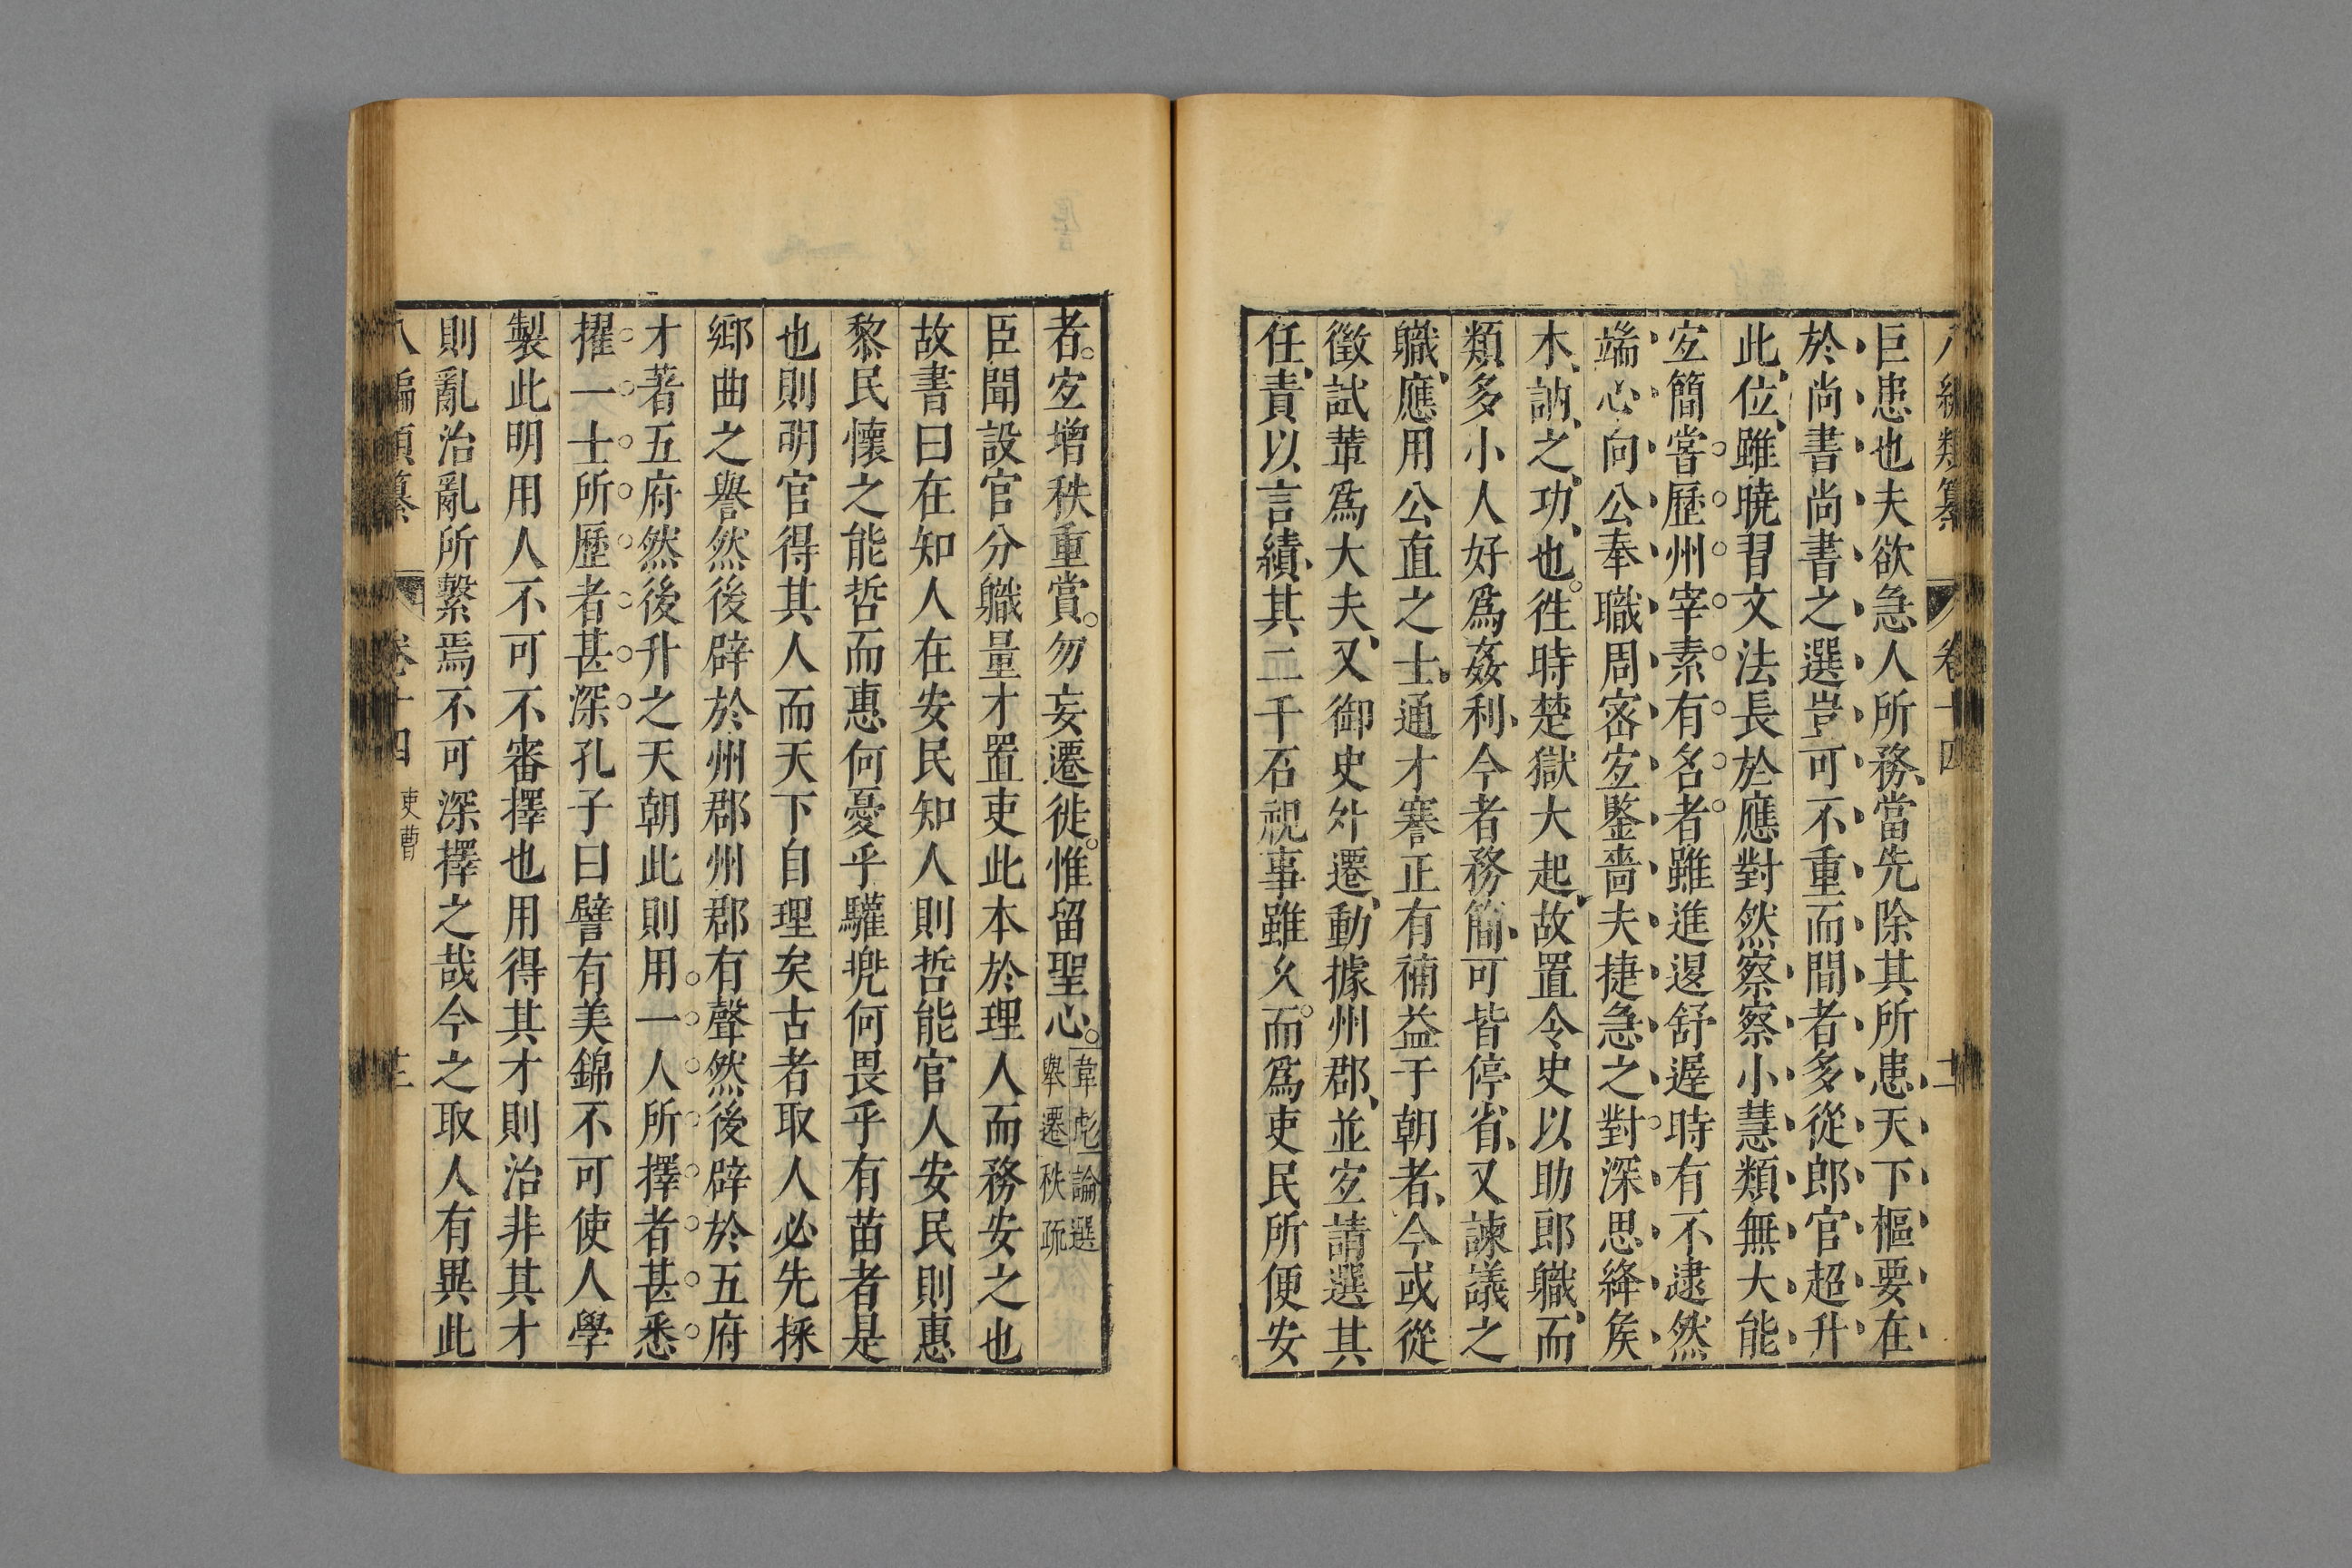 八編類纂 卷十四 十二
巨患也夫欲急人所務當先除其所患天下樞要在
於尚書尚書之選豈可不重而間者多從郎官超升
此位雖曉習文法長於應對然察察小慧類無大能
宐簡嘗歷州宰素有名者雖進退舒遲時有不逮然
端心向公奉職周宻宐鑒嗇夫捷急之對深思絳矦
木訥之功也徃時楚獄大起故置令史以助郎職而
類多小人好爲姦利今者務簡可皆停省又諫議之
職應用公直之士通才謇正有補益于朝者今或從
徵試輩爲大夫又御史外遷動據州郡並宐請選其
任責以言績其二千石視事雖久而爲吏民所便安
者宐增秩重賞勿妄遷徙惟留聖心韋彪論選
舉遷秩疏
臣聞設官分職量才置吏此本於理人而務安之也
故書曰在知人在安民知人則哲能官人安民則惠
黎民懷之能哲而惠何憂乎驩兜何畏乎有苗者是
也則明官得其人而天下自理矣古者取人必先採
鄉曲之譽然後辟於州郡州郡有聲然後辟於五府
才著五府然後升之天朝此則用一人所擇者甚悉
擢一士所歷者甚深孔子曰譬有美錦不可使人學
製此明用人不可不審擇也用得其才則治非其才
則亂治亂所繫焉不可深擇之哉今之取人有異此
八編類纂 卷十四 吏曹 十三